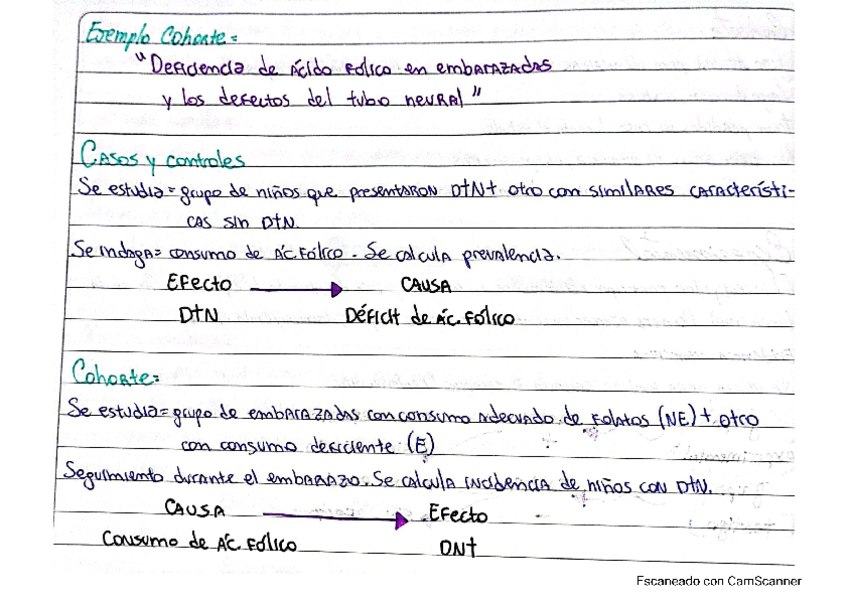 Ejemplo Cohorte =
"Deficiencia de Ácido Fólico en embarazadas
y los defectos del tubo neural"
Casos y controles
Se estudia = grupo de niños que presentaron DTN + otro con similares característi-
cas sin DTN.
Se indaga = consumo de Ác. Fólico. Se calcula prevalencia.
Efecto → CAUSA
DTN Déficit de Ác. Fólico
Cohorte =
Se estudia = grupo de embarazadas con consumo adecuado de folatos (NE) + otro
con consumo deficiente (E)
Seguimiento durante el embarazo. Se calcula incidencia de niños con DTN.
CAUSA → Efecto
Consumo de Ác. Fólico DNT
Escaneado con CamScanner